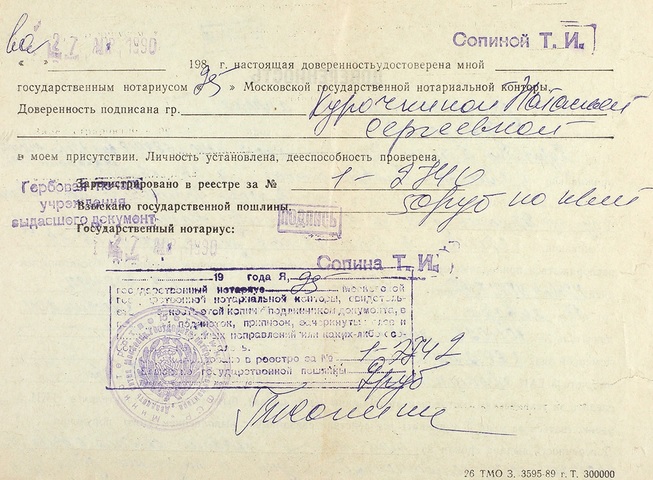 27 1990
Сопиной Т. И.
« » 198 г. настоящая доверенность удостоверена мной
государственным нотариусом 95 » Московской государственной нотариальной конторы.
Доверенность подписана гр. Курочкиной Натальей
Сергеевной
в моем присутствии. Личность установлена, дееспособность проверена
Зарегистрировано в реестре за № 1-2740
Гербовая печать
учреждения
выдавшего документ
Взыскано государственной пошлины руб по
подпись
Государственный нотариус:
27 1990
Сопина Т. И.
19 года Я, 95
государственный нотариус Московской
государственной нотариальной конторы, свидетель-
этой копии подлиннику документа, в
подчисток, приписок, зачеркнутых слов и
исправлений или каких-либо осо-
в реестре за № 1-2742
государственной пошлины руб
26 ТМО З. 3595-89 г. Т. 300000